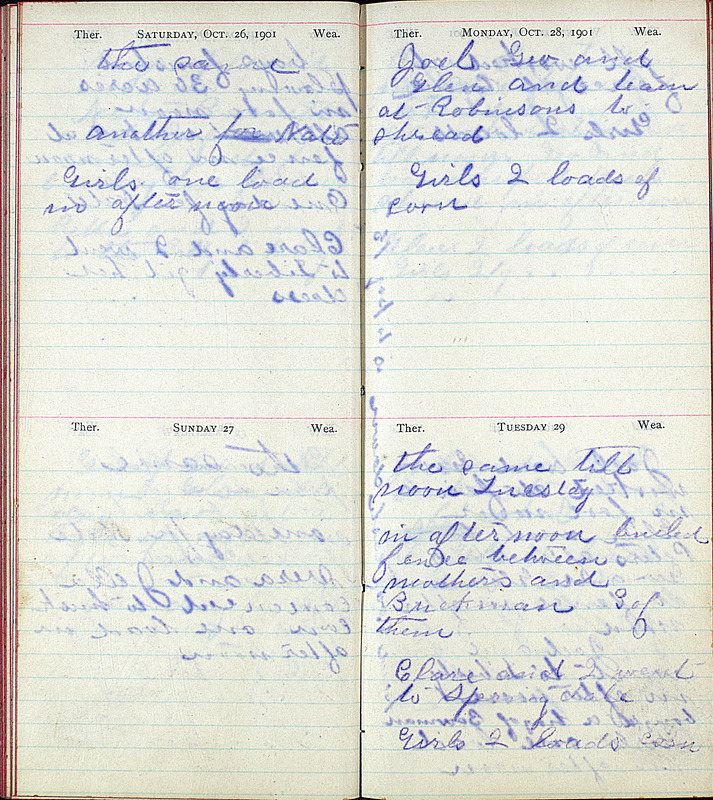 Ther. SATURDAY, OCT. 26, 1901 Wea.
the same
another for Nate
Girls one load
in after noon
Ther. SUNDAY 27 Wea.
Ther. MONDAY, OCT. 28, 1901 Wea.
Joel Geo and
Glen and team
at Robinsons to
shread
Girls 2 loads of
corn
Ther. TUESDAY 29 Wea.
the same till
noon Tuesday
in after noon builed
fence between
mothers and
3 of
them
Clare and I went
to
Girls 2 loads corn